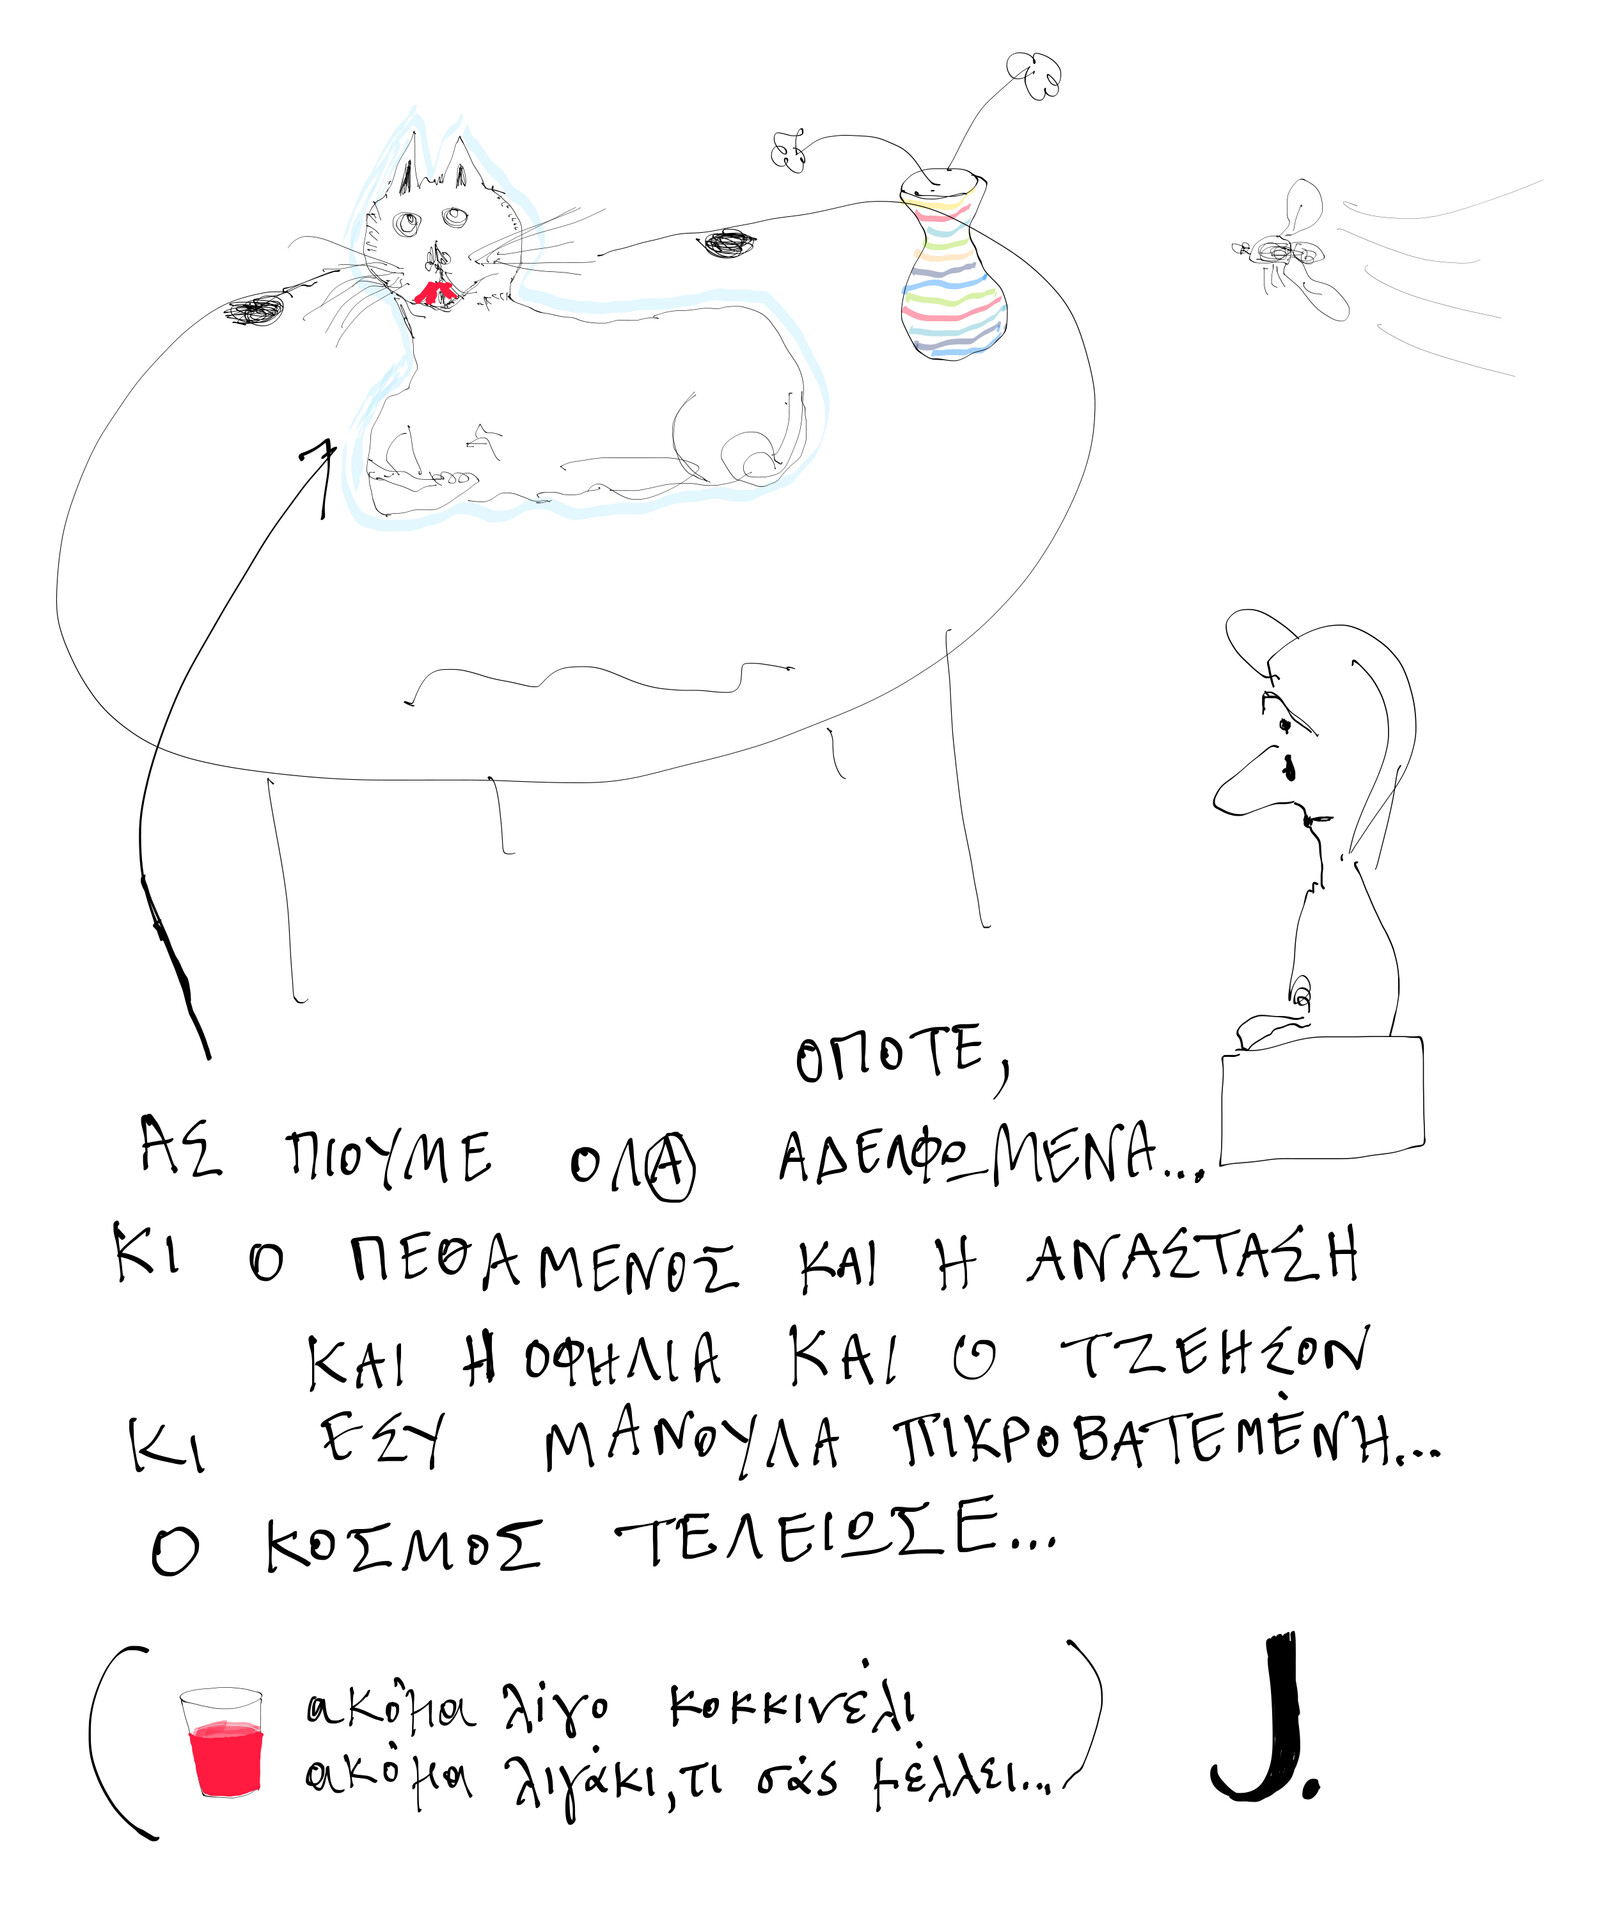 ΟΠΟΤΕ,
ΑΣ ΠΙΟΥΜΕ ΟΛΑ ΑΔΕΛΦΩΜΕΝΑ...
ΚΙ Ο ΠΕΘΑΜΕΝΟΣ ΚΑΙ Η ΑΝΑΣΤΑΣΗ
ΚΑΙ Η ΟΦΗΛΙΑ ΚΑΙ Ο ΤΖΕΗΣΟΝ
ΚΙ ΕΣΥ ΜΑΝΟΥΛΑ ΠΙΚΡΟΒΑΤΕΜΈΝΗ...
Ο ΚΟΣΜΟΣ ΤΕΛΕΙΩΣΕ...
(ακόμα λίγο κοκκινέλι
ακόμα λιγάκι, τι σάς μέλλει...)
J.